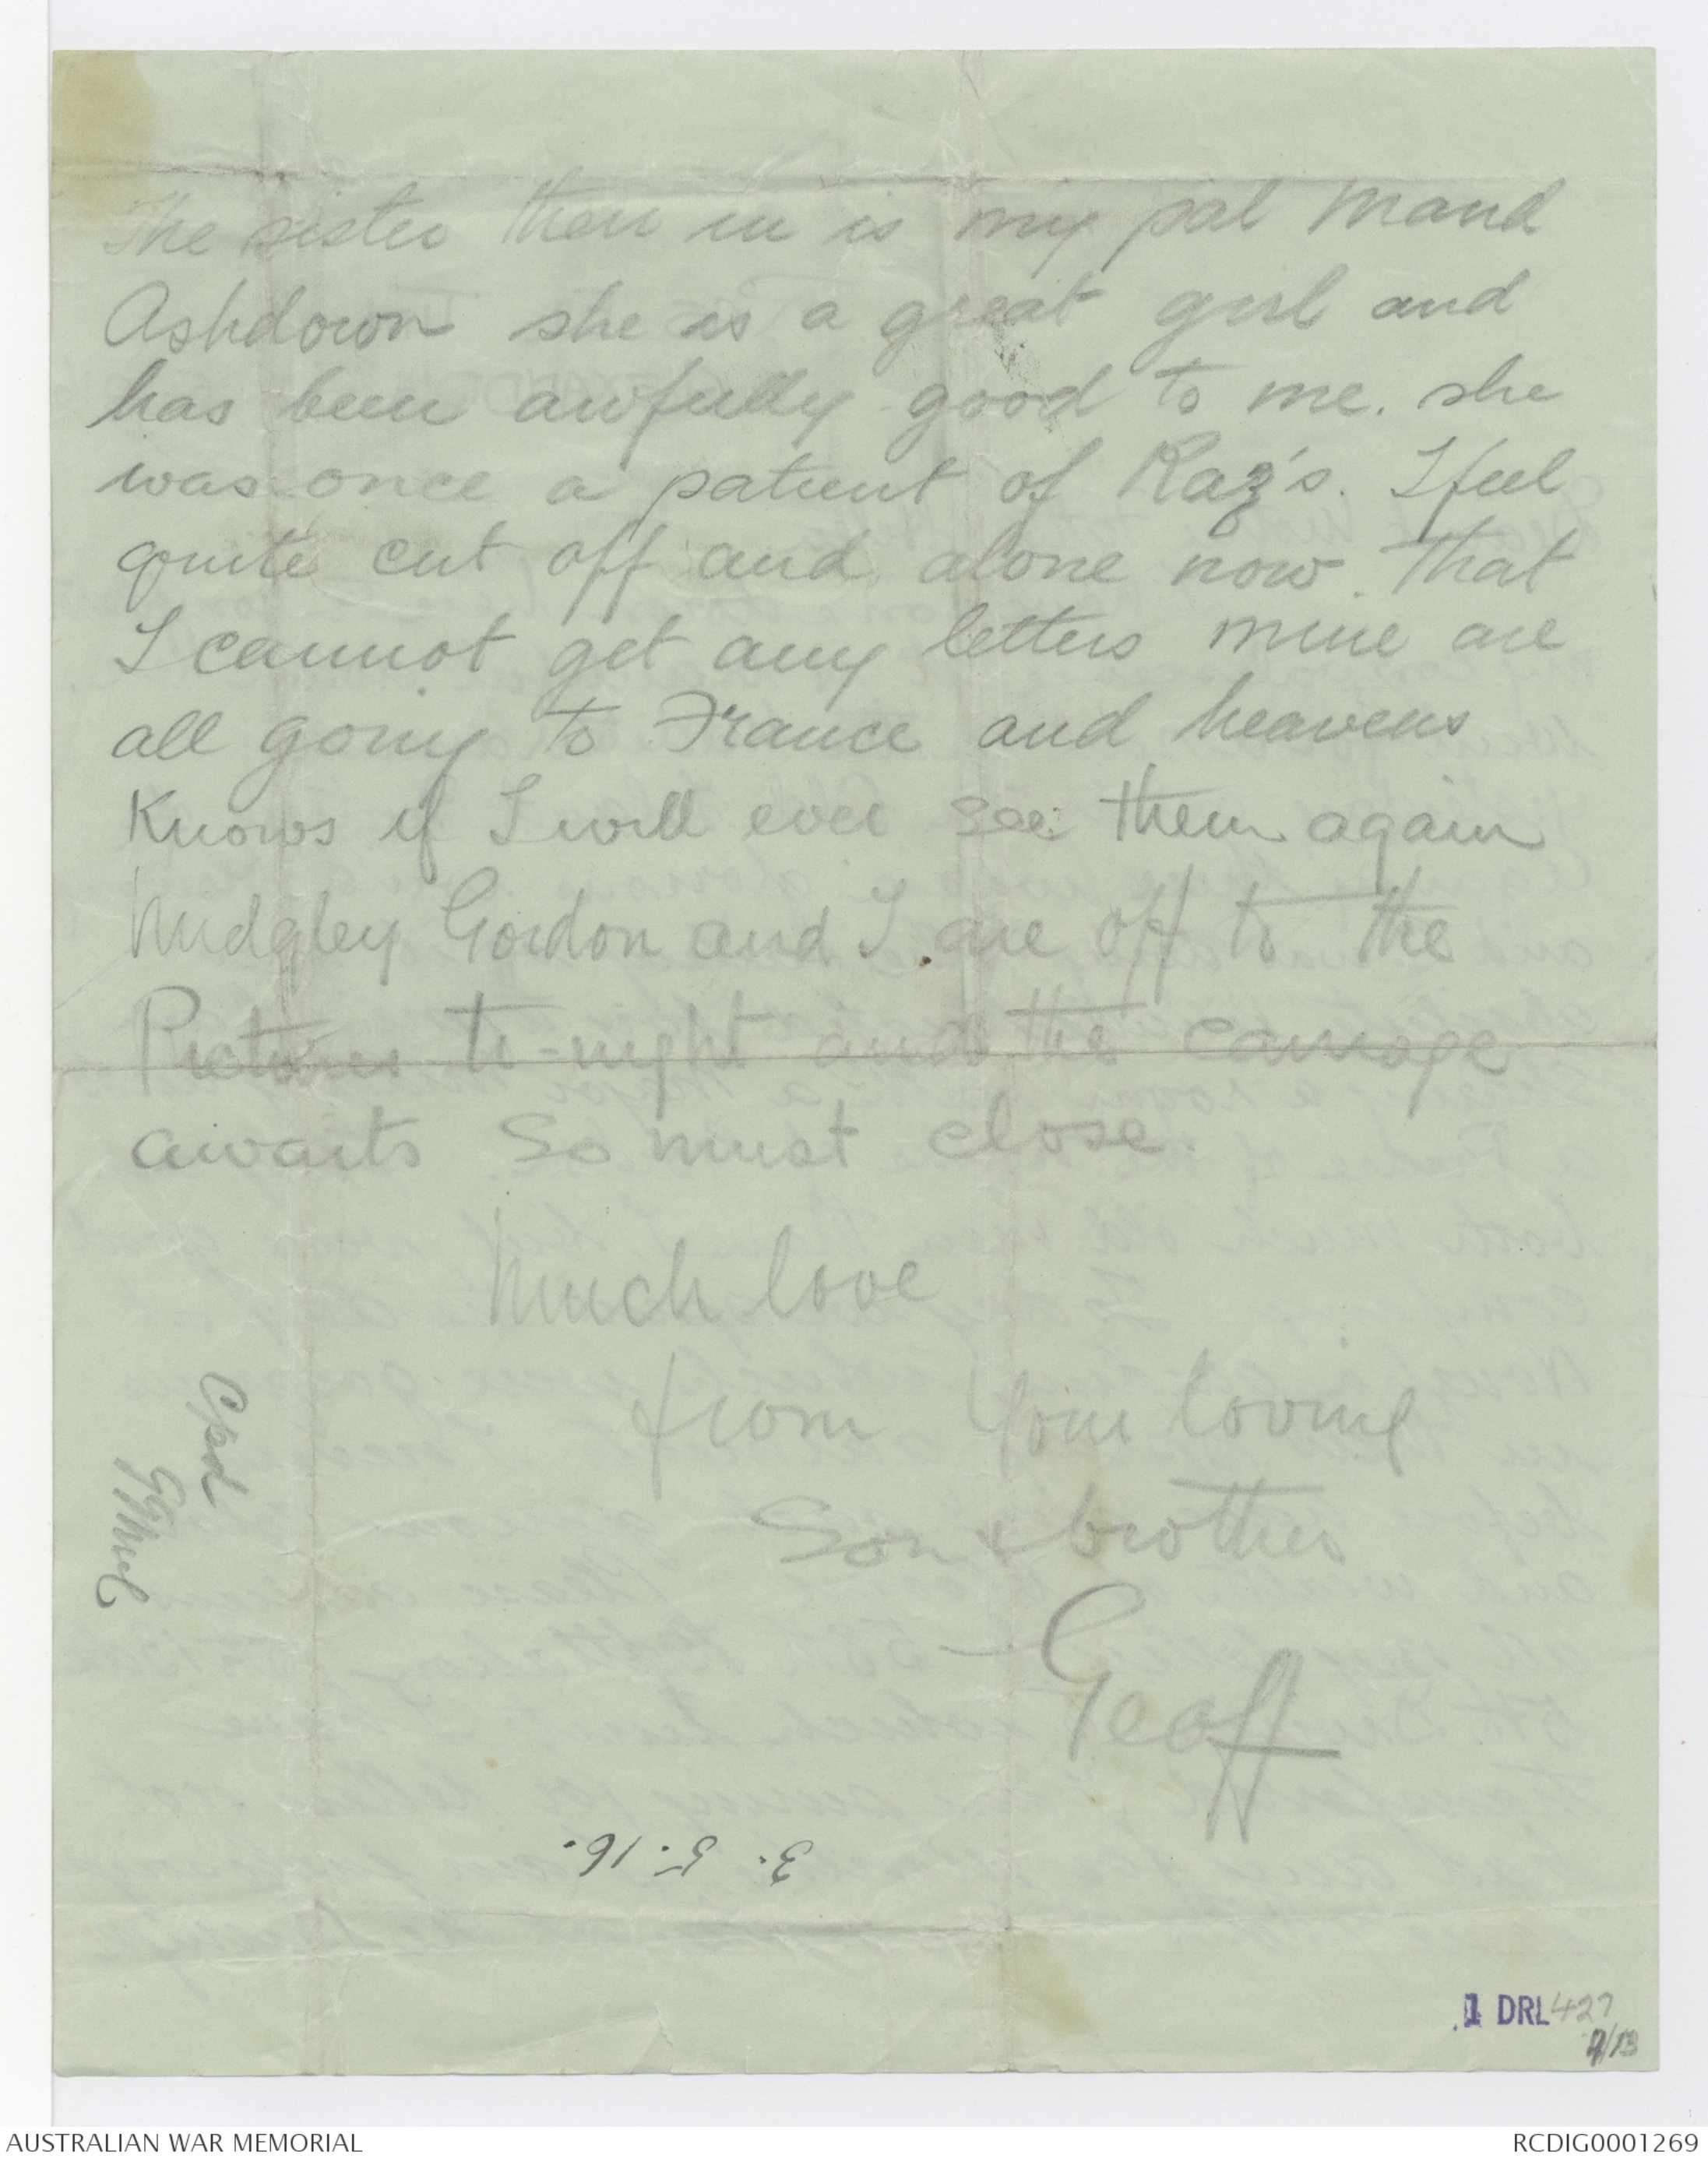 The sister then in is my pal Maud
Ashdown she is a great girl and
has been awfully good to me. she
was once a patient of Raz's. I feel
quite cut off and alone now that
I cannot get any letters mine are
all going to France and heavens
Knows if I will ever see them again
Midgley Gordon and I are off to the
Pictures to-night and the carriage
awaits so must close.
Much love
from your loving
Son & brother
Geoff
3. 5. 16.
1 DRL 427
AUSTRALIAN WAR MEMORIAL
RCDIG0001269